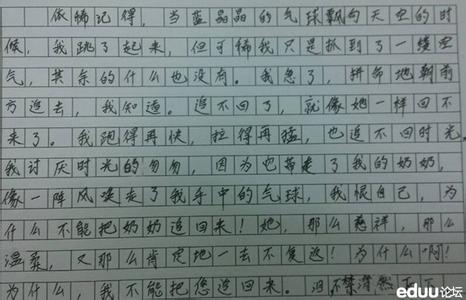 依稀记得，当蓝晶晶的气球飘向天空的时
候，我跳了起来，但可稀我只是抓到了一缕空
气，其余的什么也没有。我急了，拼命地朝前
方追去，我知道。追不回了，就像她一样回不
来了。我跑得再快，拉得再猛，也追不回时光。
我讨厌时光的匆匆，因为它带走了我的奶奶，
像一阵风 走了我手中的气球，我恨自己，为
什么不能把奶奶追回来！她，那么慈祥，那么
温柔，又那么肯定地一去不复返！为什么啊！
为什么，我不能把您追回来。泪不禁潸然下
eduu论坛